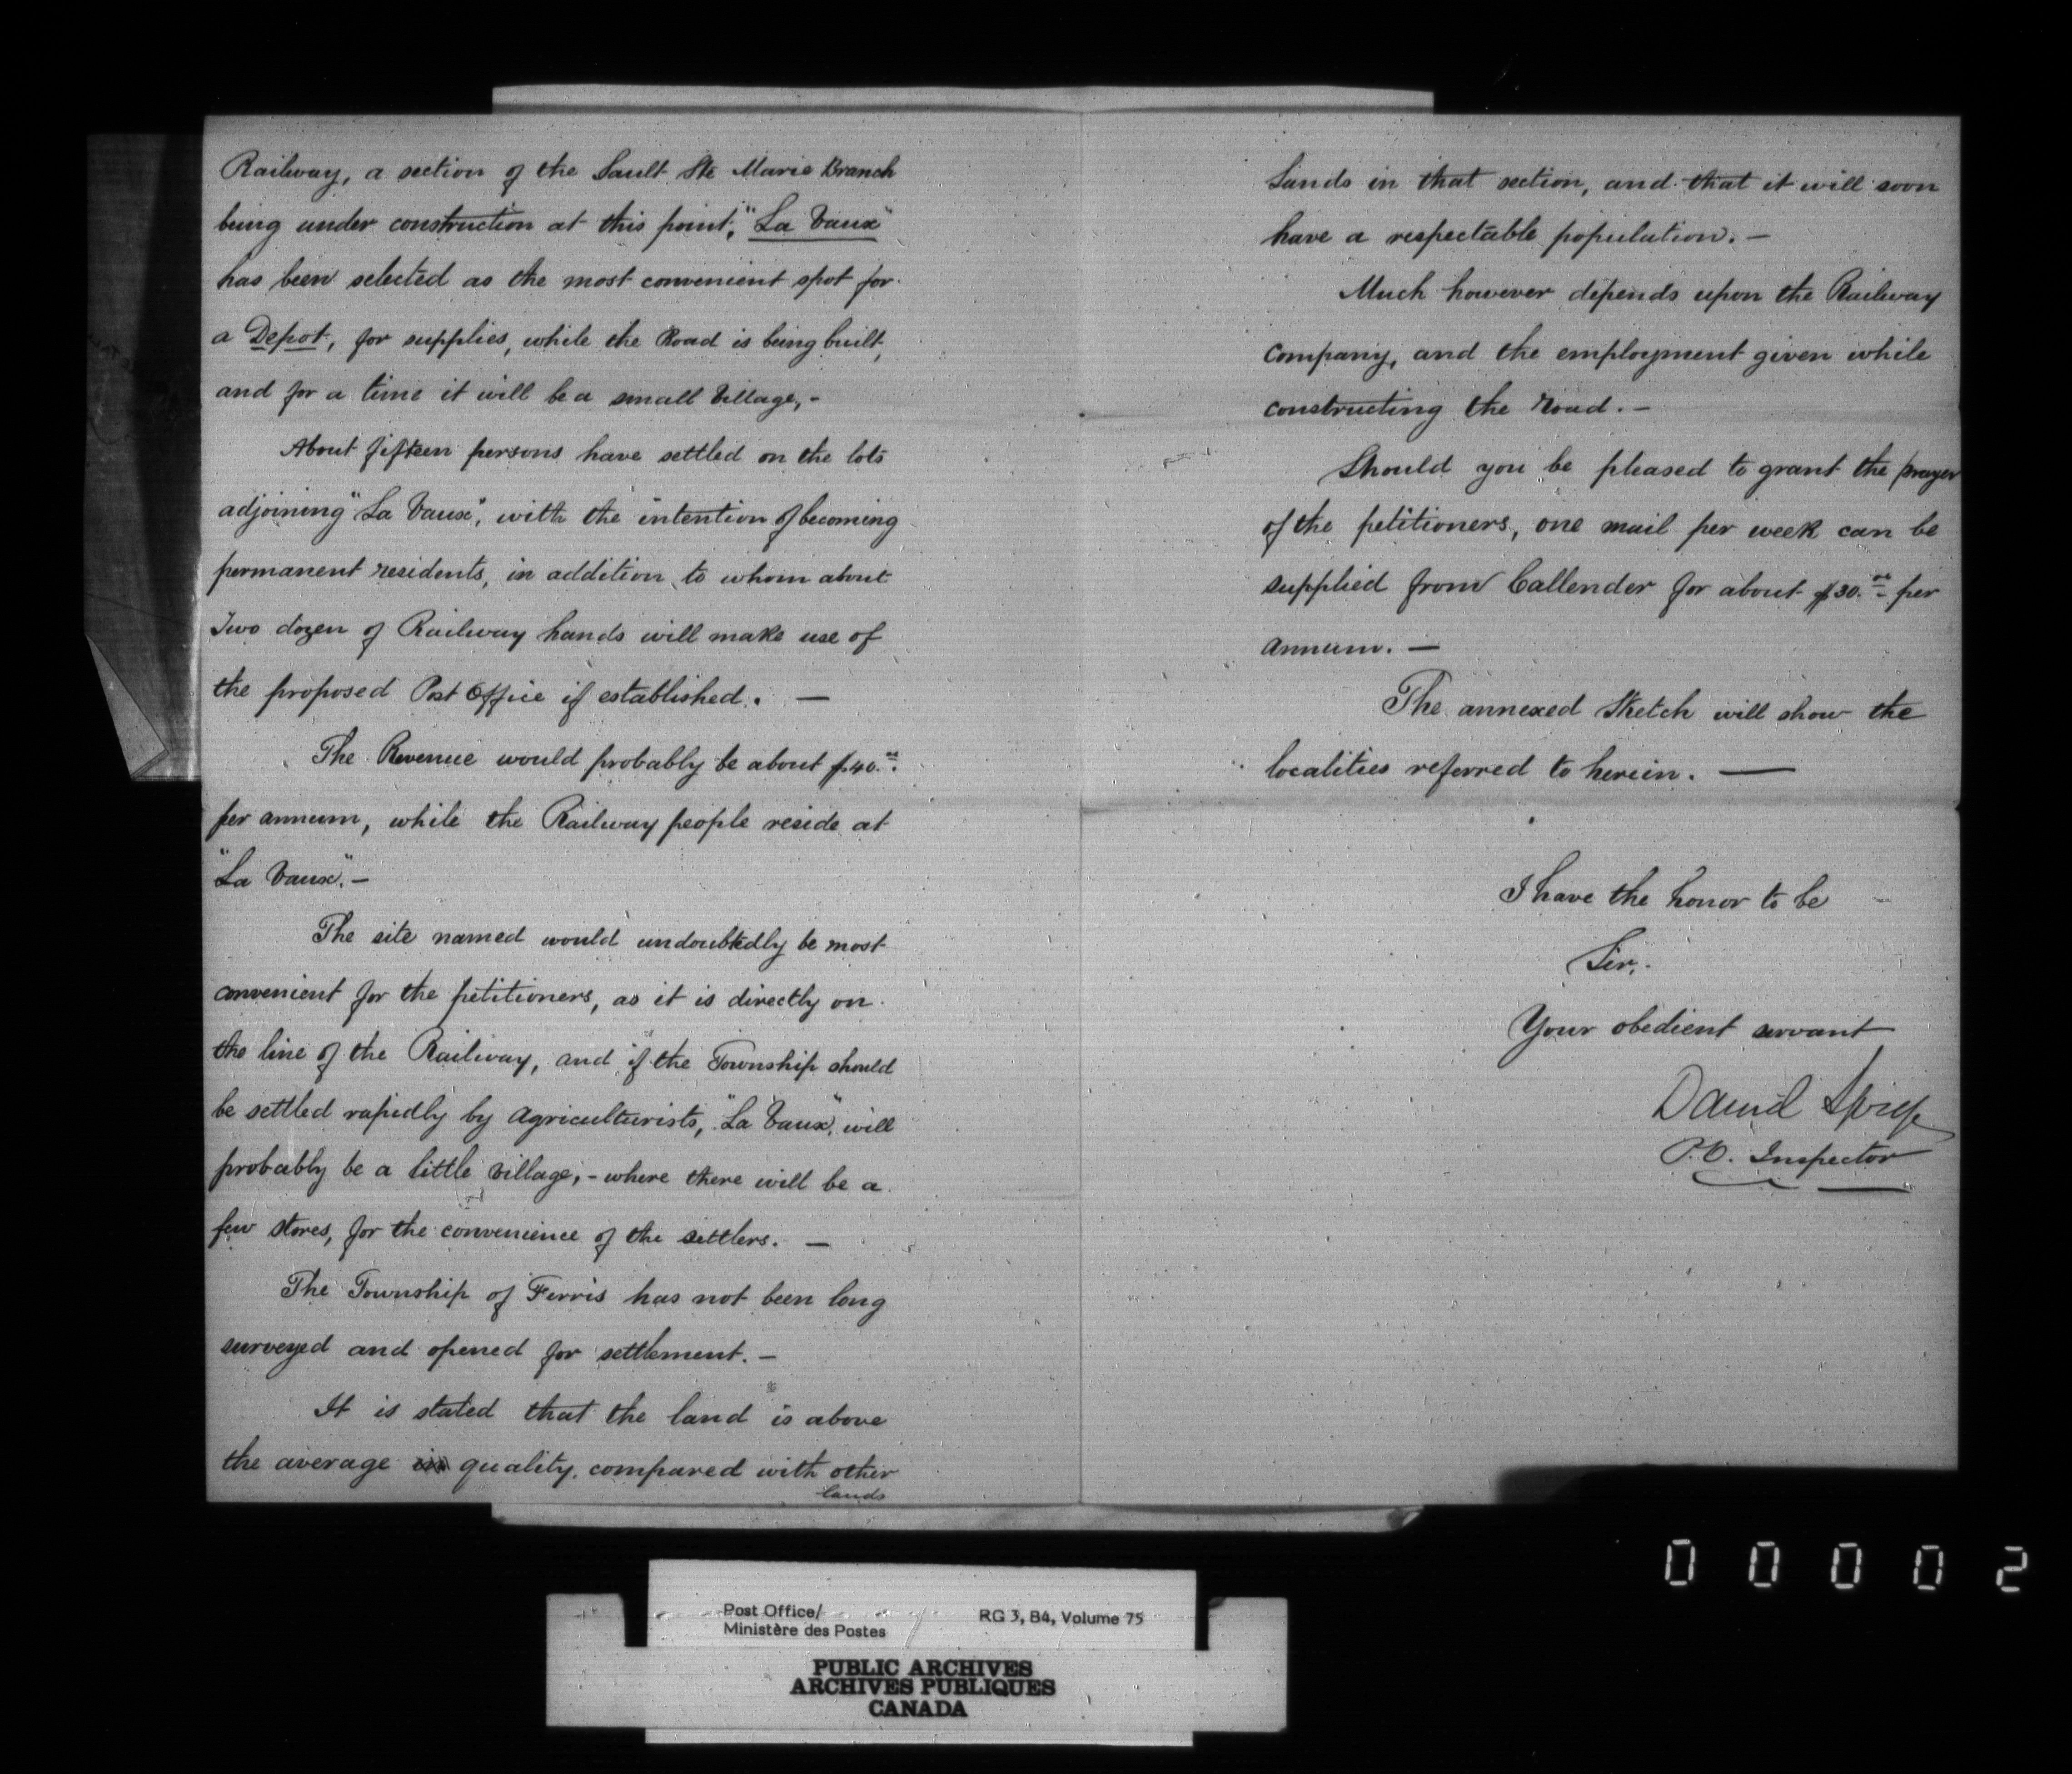 Railway, a section of the Sault Ste Marie Branch
being under construction at this point, "La Vaux"
has been selected as the most convenient spot for
a Depot, for supplies, while the Road is being built,
and for a time it will be a small Village, -
About fifteen persons have settled on the lots
adjoining "La Vaux", with the intention of becoming
permanent residents, in addition to whom about
Two dozen of Railway hands will make use of
the proposed Post Office if established. —
The Revenue would probably be about $40.00
per annum, while the Railway people reside at
"La Vaux". -
The site named would undoubtedly be most
convenient for the petitioners, as it is directly on
the line of the Railway, and if the Township should
be settled rapidly by Agriculturists, "La Vaux", will
probably be a little village, - where there will be a
few stores, for the convenience of the settlers. —
The Township of Ferris has not been long
surveyed and opened for settlement. -
It is stated that the land is above
the average in quality, compared with other
lands
Lands in that section, and that it will soon
have a respectable population. -
Much however depends upon the Railway
Company, and the employment given while
constructing the Road. -
Should you be pleased to grant the prayer
of the petitioners, one mail per week can be
supplied from Callender for about $30.00 per
annum. —
The annexed Sketch will show the
localities referred to herein. —
I have the honor to be
Sir,
Your obedient servant
David
P.O. Inspector
0 0 0 0 2
Post Office/
Ministère des Postes
RG 3, B4, Volume 75
PUBLIC ARCHIVES
ARCHIVES PUBLIQUES
CANADA